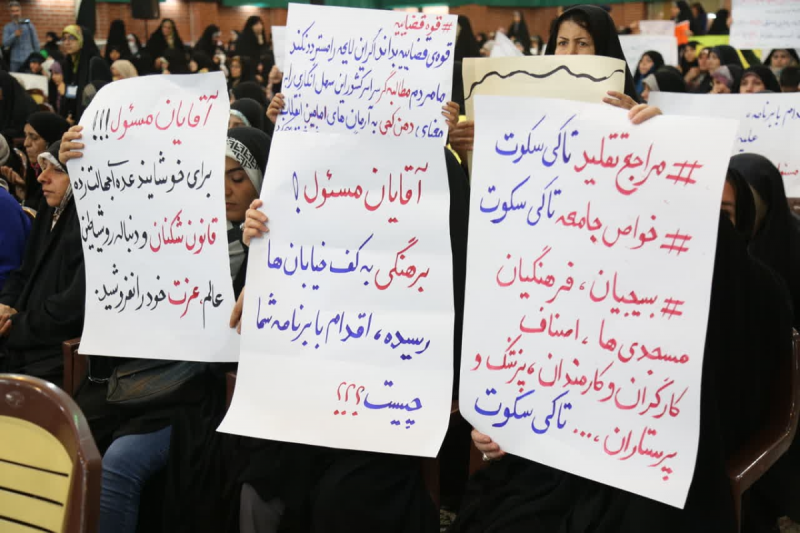 آقایان مسئول!!!
برای خوشایند عده ای جهالت زده
قانون شکنان و دنباله رو شیاطین
عالم، عزت خود را نفروشید.
#قوه_قضاییه
قوه‌ی قضاییه بداند اگر این لایحه را مسترد نکند
ما مردم مطالبه گر سراسر کشور این سهل انگاری را به
معنای دهن کجی به آرمان های امامین انقلاب
آقایان مسئول!
برهنگی به کف خیابان ها
رسیده، اقدام با برنامه شما
چیست؟؟؟
#مراجع تقلید تا کی سکوت
#خواص جامعه تا کی سکوت
#بسیجیان، فرهنگیان
مسجدی ها، اصناف
کارگران و کارمندان، پزشک و
پرستاران ،... تا کی سکوت